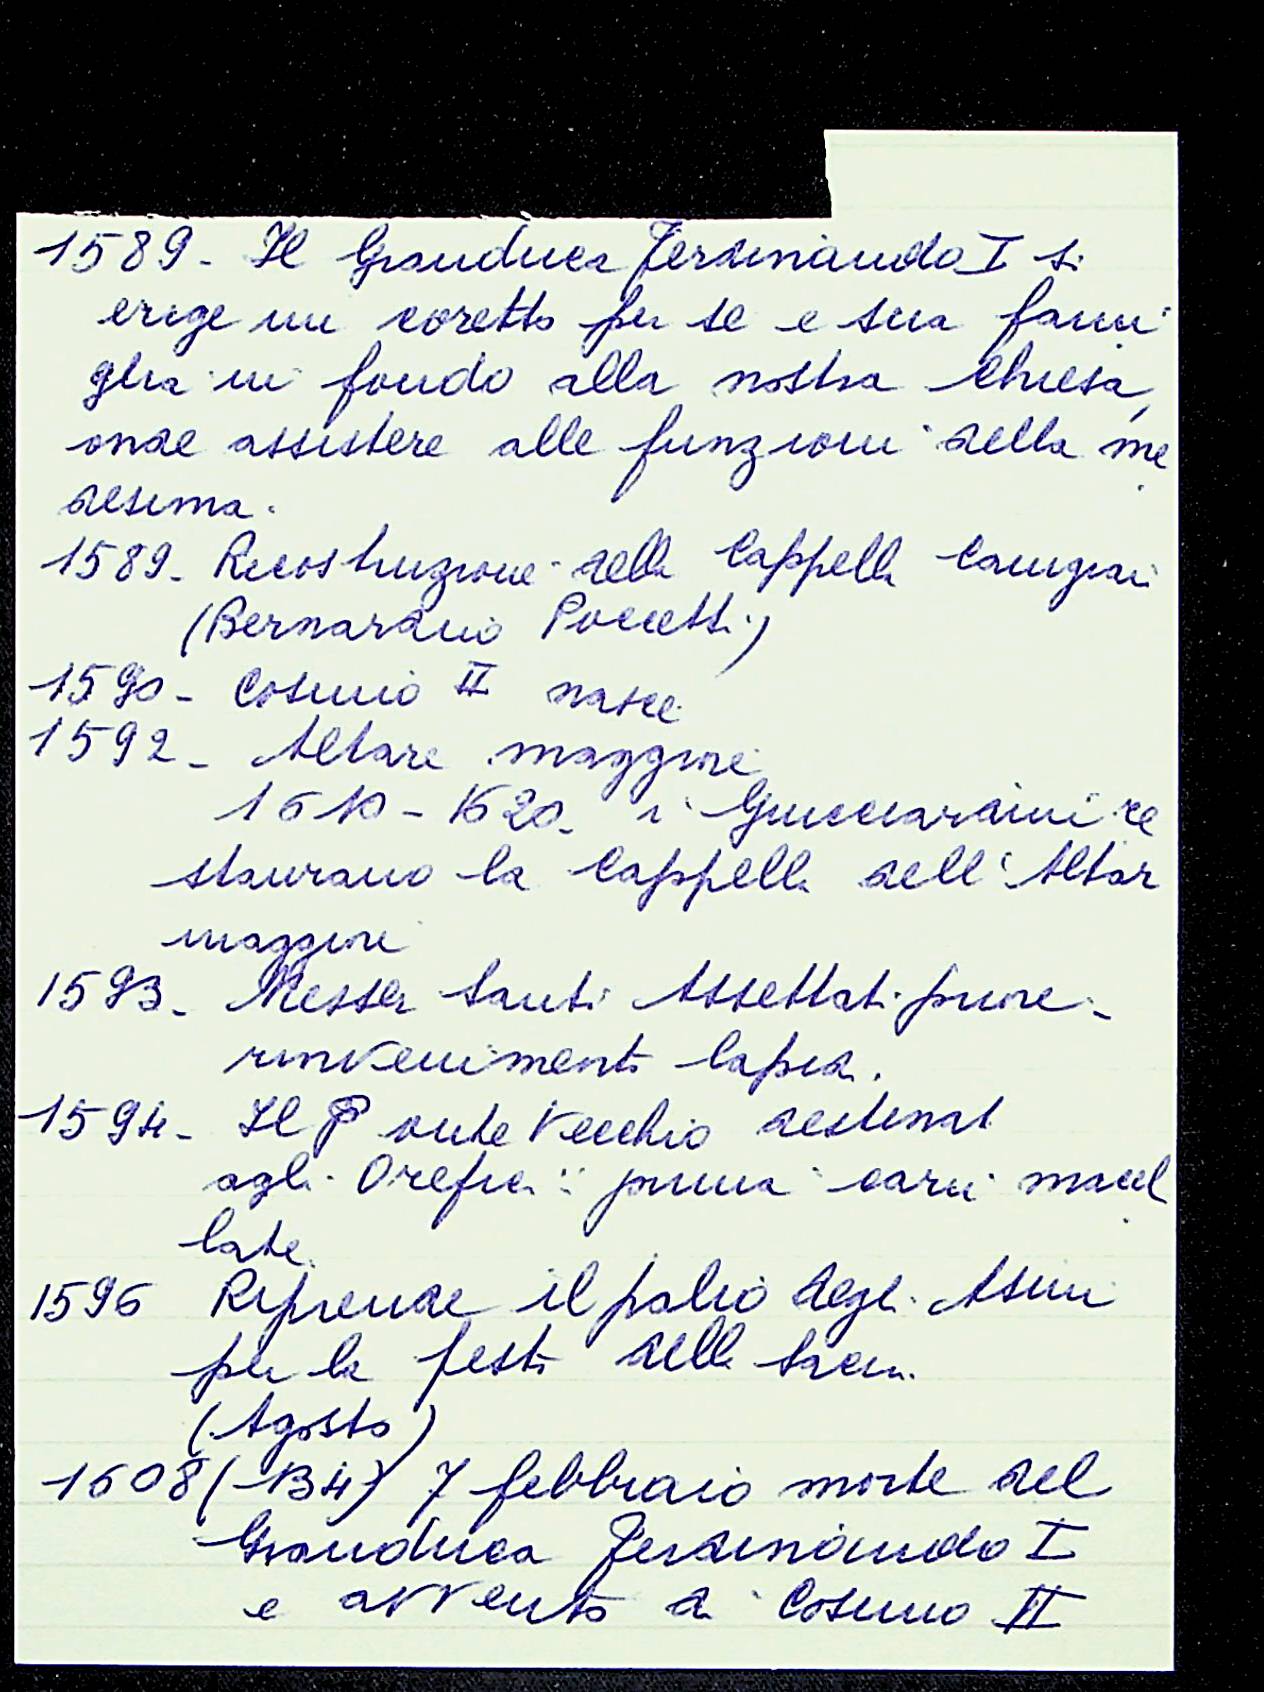 1589 - Il Granduca Ferdinando I si
erige un coretto per se e sua fami
glia in fondo alla nostra Chiesa,
onde assistere alle funzioni della me
desima.
1589 - Ricostruzione della Cappella Canigiani
(Bernardino Poccetti)
1590 - Cosimo II nasce
1592 - Altare maggiore
1610 - 1620 - i Guicciardini re
staurano la Cappella dell'Altar
maggiore
1593 - Messer Santi Assettati priore -
rinvenimento lapide.
1594 - Il Ponte Vecchio destinat
agli Orefici: prima carni macel
late.
1596 Riprende il palio degli Asini
per la festa della Sacra.
(Agosto)
1608 (134) 7 febbraio morte del
Granduca Ferdinando I
e avvento di Cosimo II